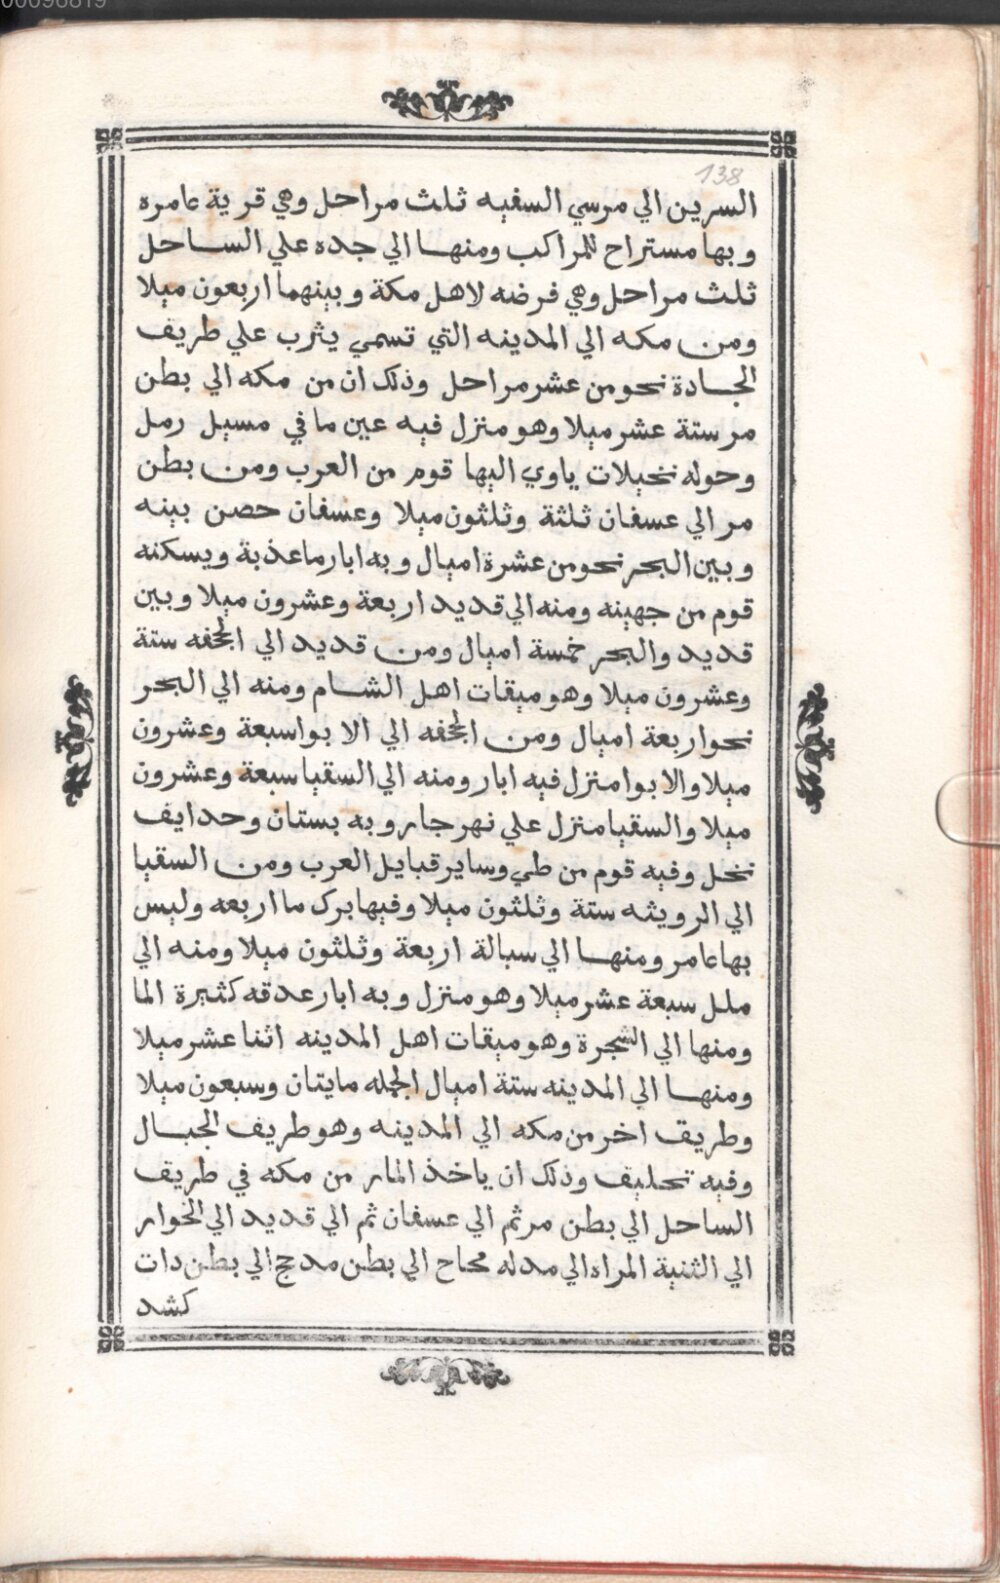 00096819
138
السرين الي مرسي السفيه ثلث مراحل وهي قرية عامره
وبها مستراح للمراكب ومنها الي جده علي الساحل
ثلث مراحل وهي فرضه لاهل مكة وبينهما اربعون ميلا
ومن مكه الي المدينه التي تسمي يثرب علي طريف
الجادة نحو من عشر مراحل وذلك ان من مكه الي بطن
مر ستة عشر ميلا وهو منزل فيه عين ما في مسيل رمل
وحوله نخيلات ياوي اليها قوم من العرب ومن بطن
مر الي عسفان ثلثة وثلثون ميلا وعسفان حصن بينه
وبين البحر نحو من عشرة اميال وبه ابار ما عذبة ويسكنه
قوم من جهينه ومنه الي قديد اربعة وعشرون ميلا وبين
قديد والبحر خمسة اميال ومن قديد الي الجحفه ستة
وعشرون ميلا وهو ميقات اهل الشام ومنه الي البحر
نحو اربعة اميال ومن الجحفه الي الابوا سبعة وعشرون
ميلا والابوا منزل فيه ابار ومنه الي السقيا سبعة وعشرون
ميلا والسقيا منزل علي نهر جار وبه بستان وحدايف
نخل وفيه قوم من طي وساير قبايل العرب ومن السقيا
الي الرويثه ستة وثلثون ميلا وفيها برك ما اربعه وليس
بها عامر ومنها الي سيالة اربعة وثلثون ميلا ومنه الي
ملل سبعة عشر ميلا وهو منزل وبه ابار عدقه كثيرة الما
ومنها الي الشجرة وهو ميقات اهل المدينه اثنا عشر ميلا
ومنها الي المدينه ستة اميال الجمله مايتان وسبعون ميلا
وطريق اخر من مكه الي المدينه وهو طريف الجبال
وفيه تحليف وذلك ان ياخذ المار من مكه في طريف
الساحل الي بطن مر ثم الي عسفان ثم الي قديد الي الخوار
الي الثنية المراه الي مدله محاح الي بطن مدجج الي بطن دات
كشد